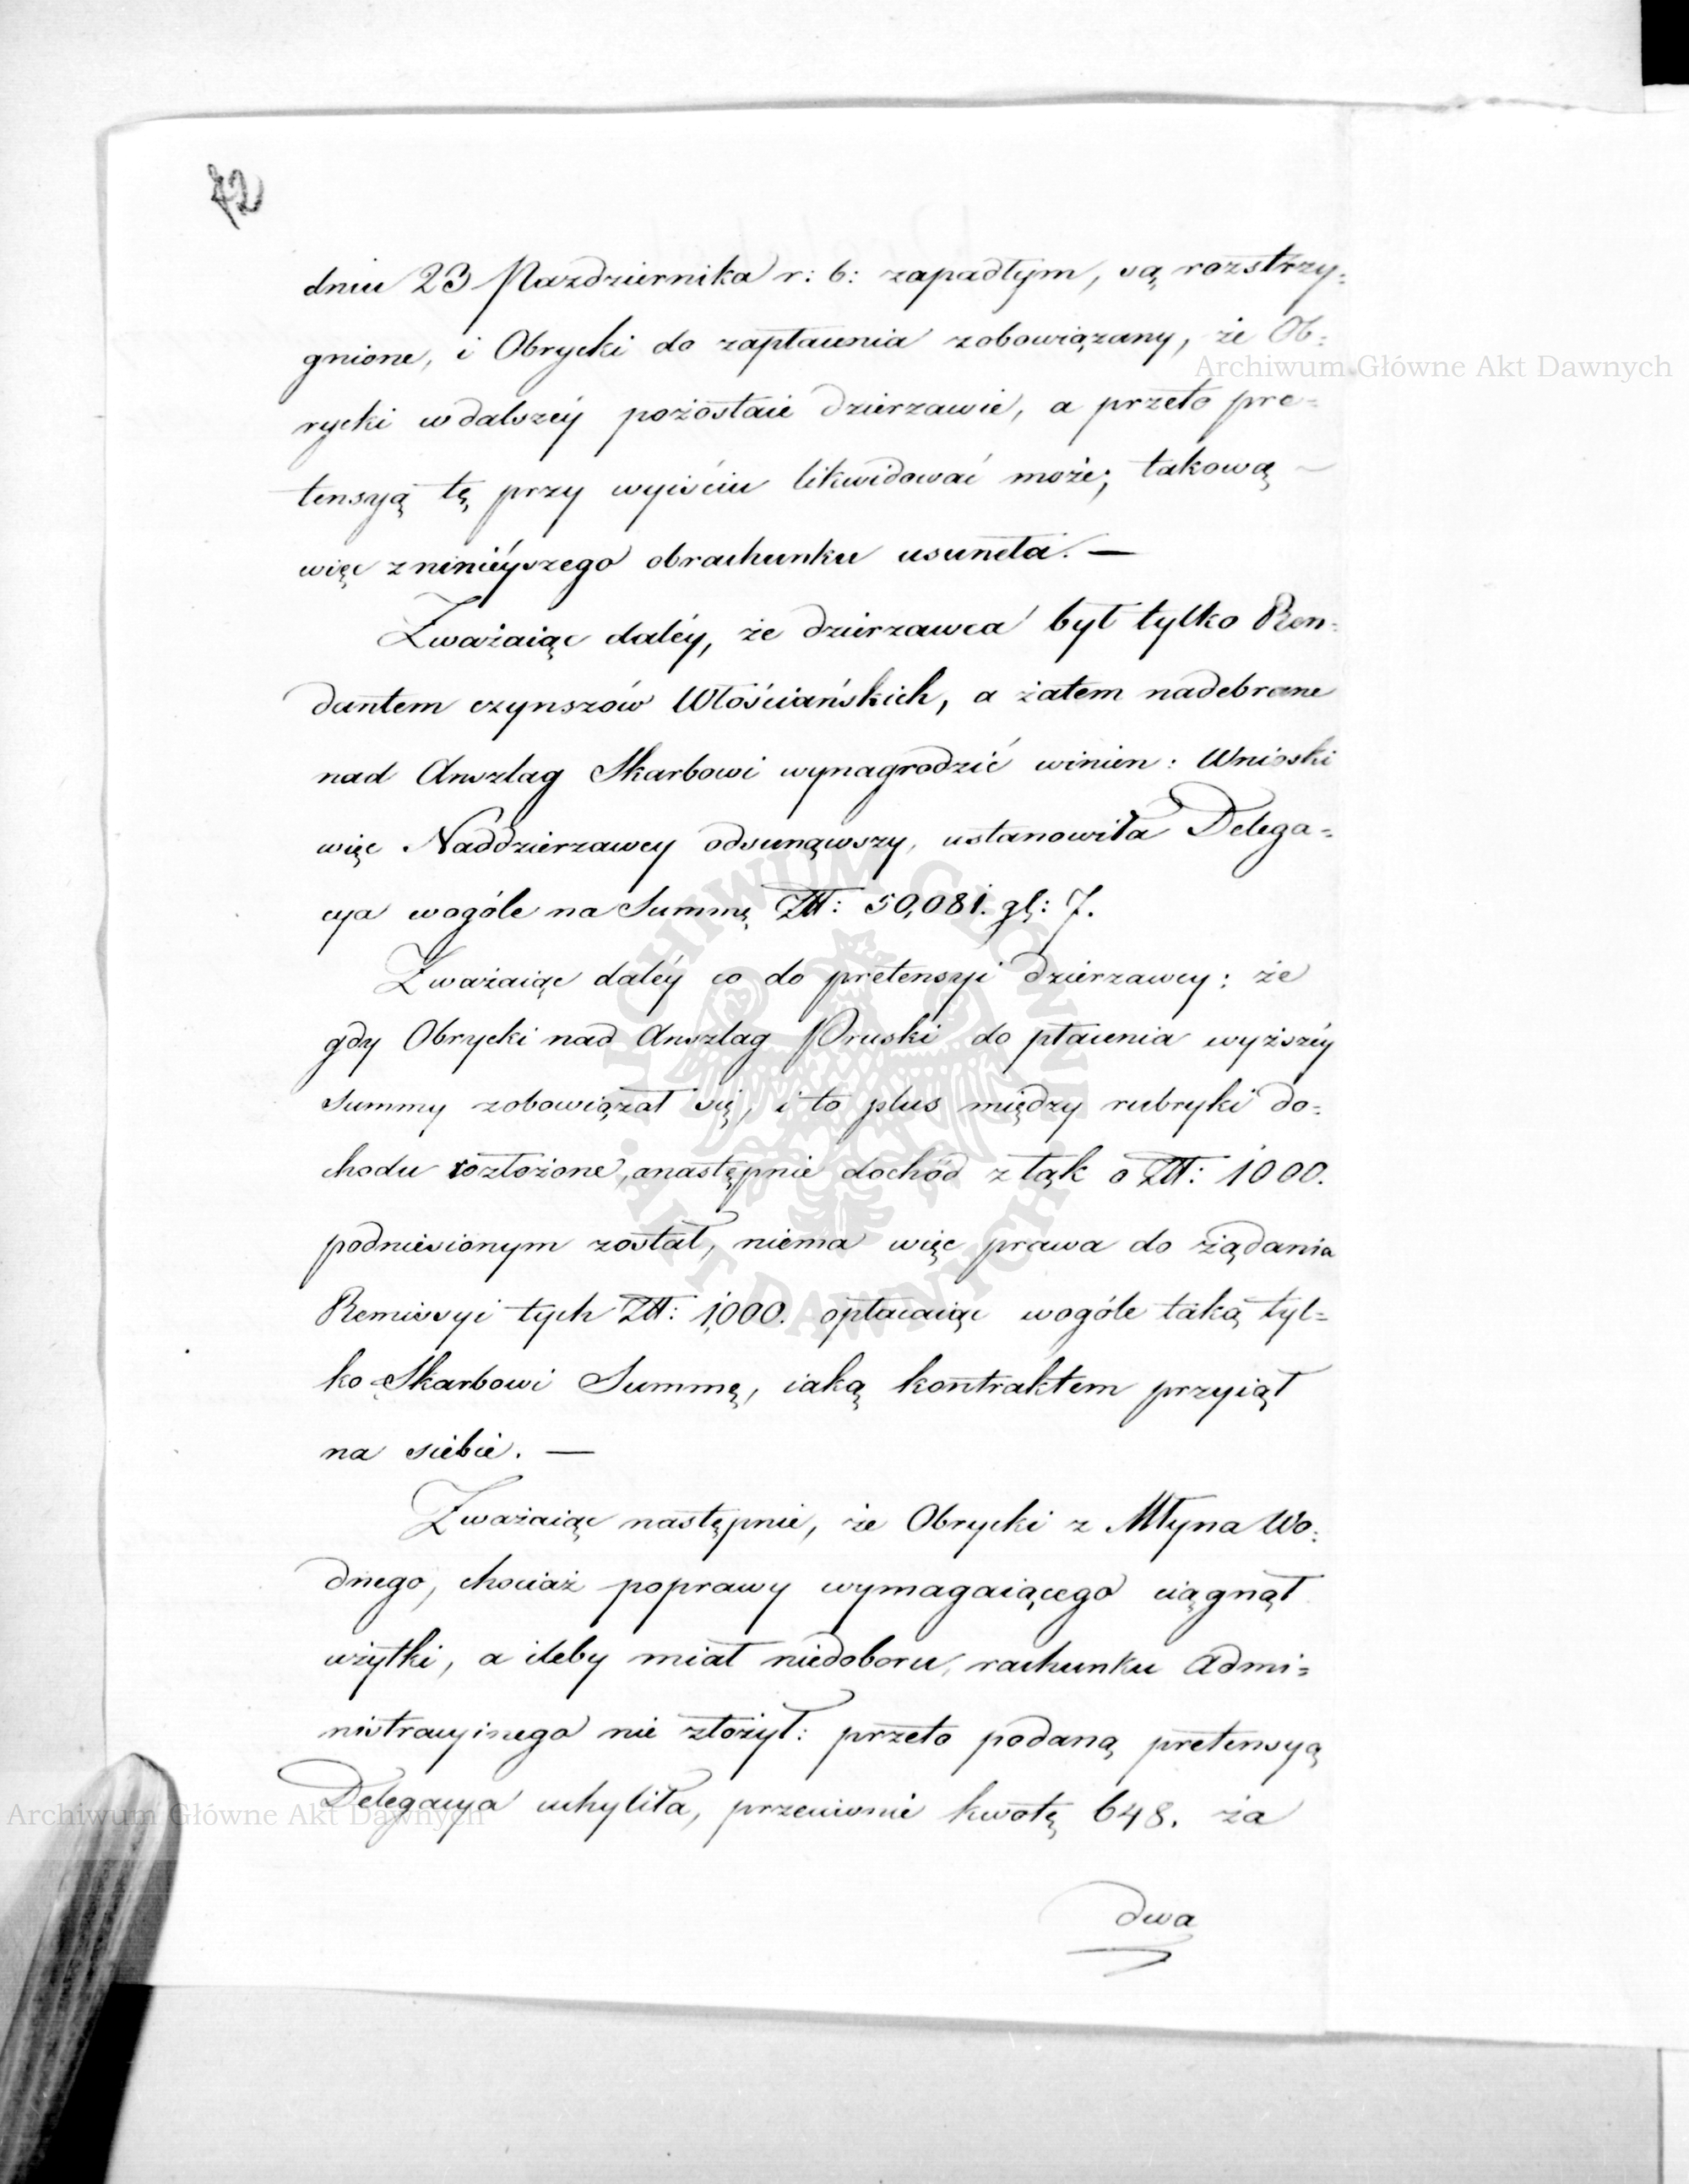 72
dniu 23 Pazdziernika r: b: zapadłym, są rozstrzy:
gnione, i Obrycki do zapłacenia zobowiązany, że Ob:
Archiwum Główne Akt Dawnych
rycki w dalszéy pozostaie dzierzawie, a przeto pre=
tensyą tę przy wyiściu likwidować może; takową
więc z ninieyszego obrachunku usuneła. —
Zważaiąc daléy, że dzierzawca był tylko Ren:
dantem czynszów Włościańskich, a zatem nadebrane
nad Anszlag Skarbowi wynagrodzić winien: Wnioski
więc Naddzierzawcy odsunąwszy, ustanowiła Delega=
cya wogóle na Summę Złł: 50,081. gl: 7.
Zważaiąc daléy co do pretensyi dzierzawcy: że
gdy Obrycki nad Anszlag Pruski do płacenia wyższéy
summy zobowiązał się, i to plus między rubryki do=
chodu rozłożone, anastępnie dochód z łąk o Złł: 1000.
podniesionym został, niema więc prawa do żądania
Remissyi tych Złł: 1,000. opłacaiąc wogóle taką tyl=
ko Skarbowi Summę, iaką kontraktem przyiął
na siebie. —
Zważaiąc następnie, że Obrycki z Młyna Wo:
dnego, chociaż poprawy wymagaiącego ciągnął
użytki, a ileby miał niedoboru, rachunku Admi=
nistracyinego nie złożył: przeto podaną pretensyą
Delegacya uchyliła, przeciwnie kwotę 648. za
Archiwum Główne Akt Dawnych
dwa
ARCHIWUM GŁÓWNE · AKT DAWNYCH ·